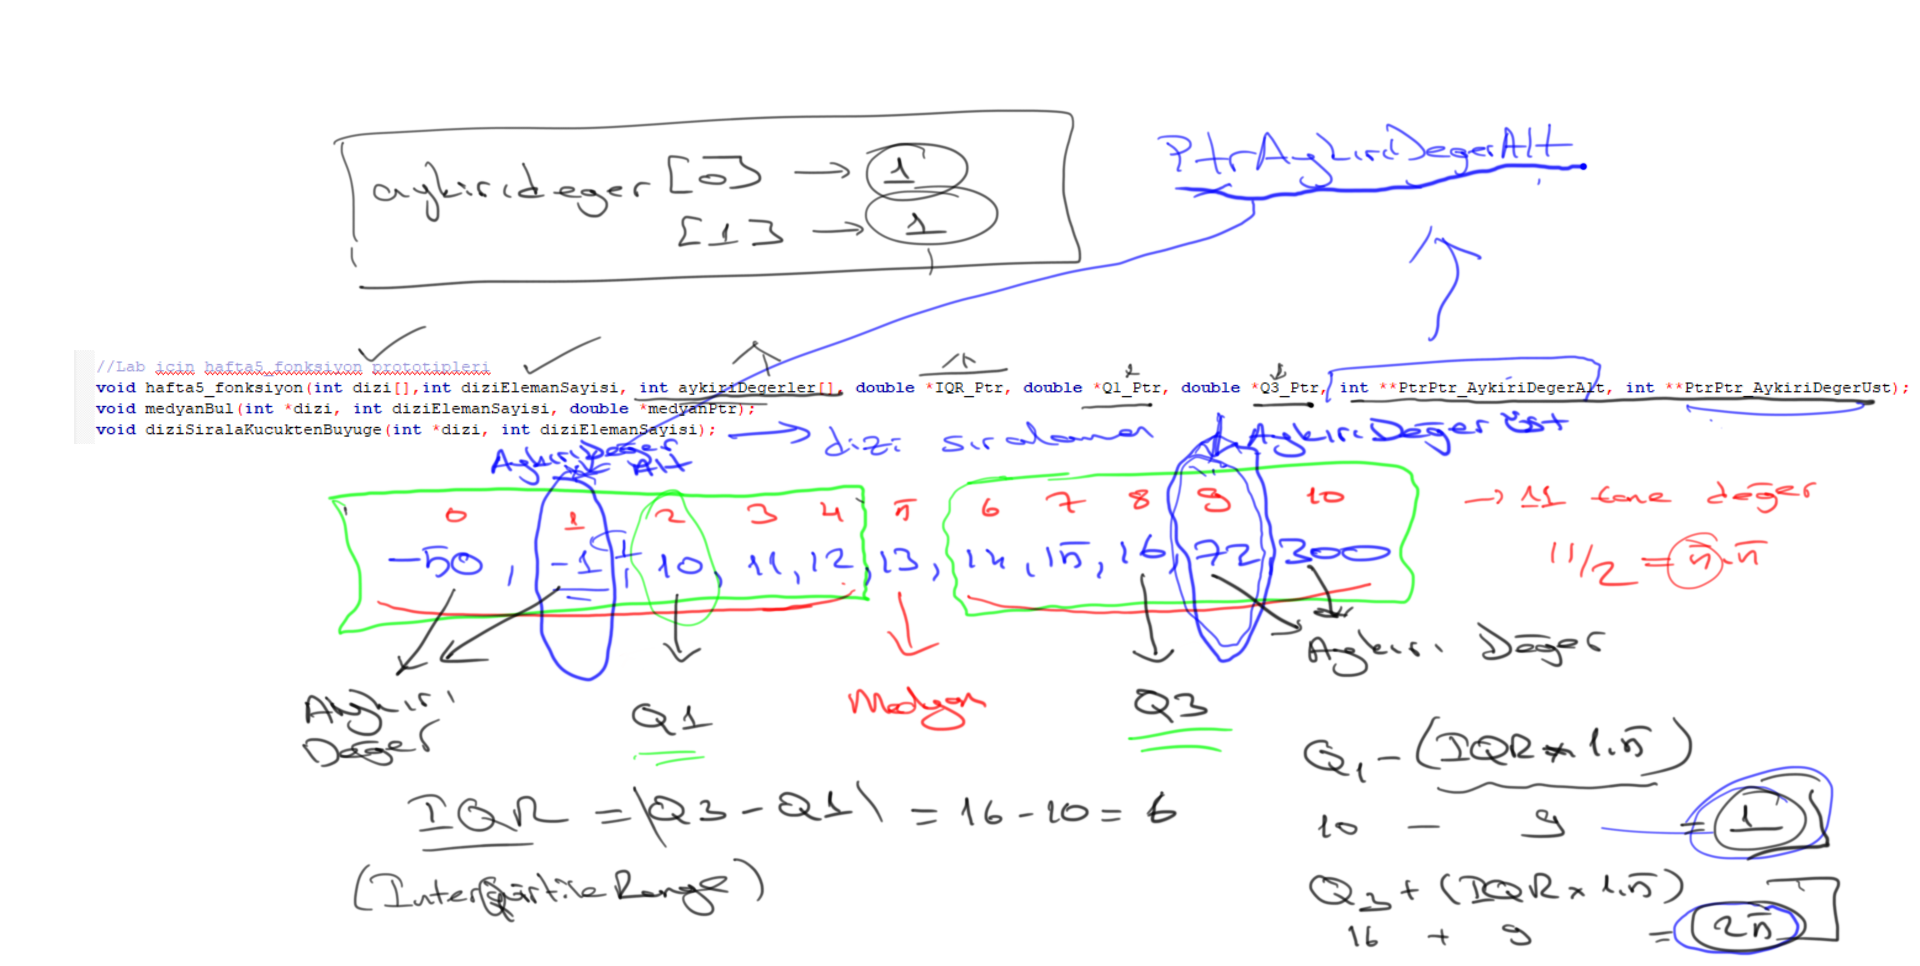 aykırıdeger [0] → 1
[1] → 1
PtrAykırıDegerAlt
//Lab icin hafta5_fonksiyon prototipleri
void hafta5_fonksiyon(int dizi[],int diziElemanSayisi, int aykiriDegerler[], double *IQR_Ptr, double *Q1_Ptr, double *Q3_Ptr, int **PtrPtr_AykiriDegerAlt, int **PtrPtr_AykiriDegerUst);
void medyanBul(int *dizi, int diziElemanSayisi, double *medyanPtr);
void diziSiralaKucuktenBuyuge(int *dizi, int diziElemanSayisi);
→ dizi sıralama
AykırıDeğer Alt
AykırıDeğer Üst
0 1 2 3 4 5 6 7 8 9 10
→ 11 tane değer
-50, -1, 10, 11, 12, 13, 14, 15, 16, 72, 300
11/2 = 5.5
Aykırı Değer
Aykırı Değer
Q1
Medyan
Q3
IQR = |Q3 - Q1| = 16 - 10 = 6
(Interquartile Range)
Q1 - (IQR * 1.5)
10 - 9 = 1
Q3 + (IQR x 1.5)
16 + 9 = 25